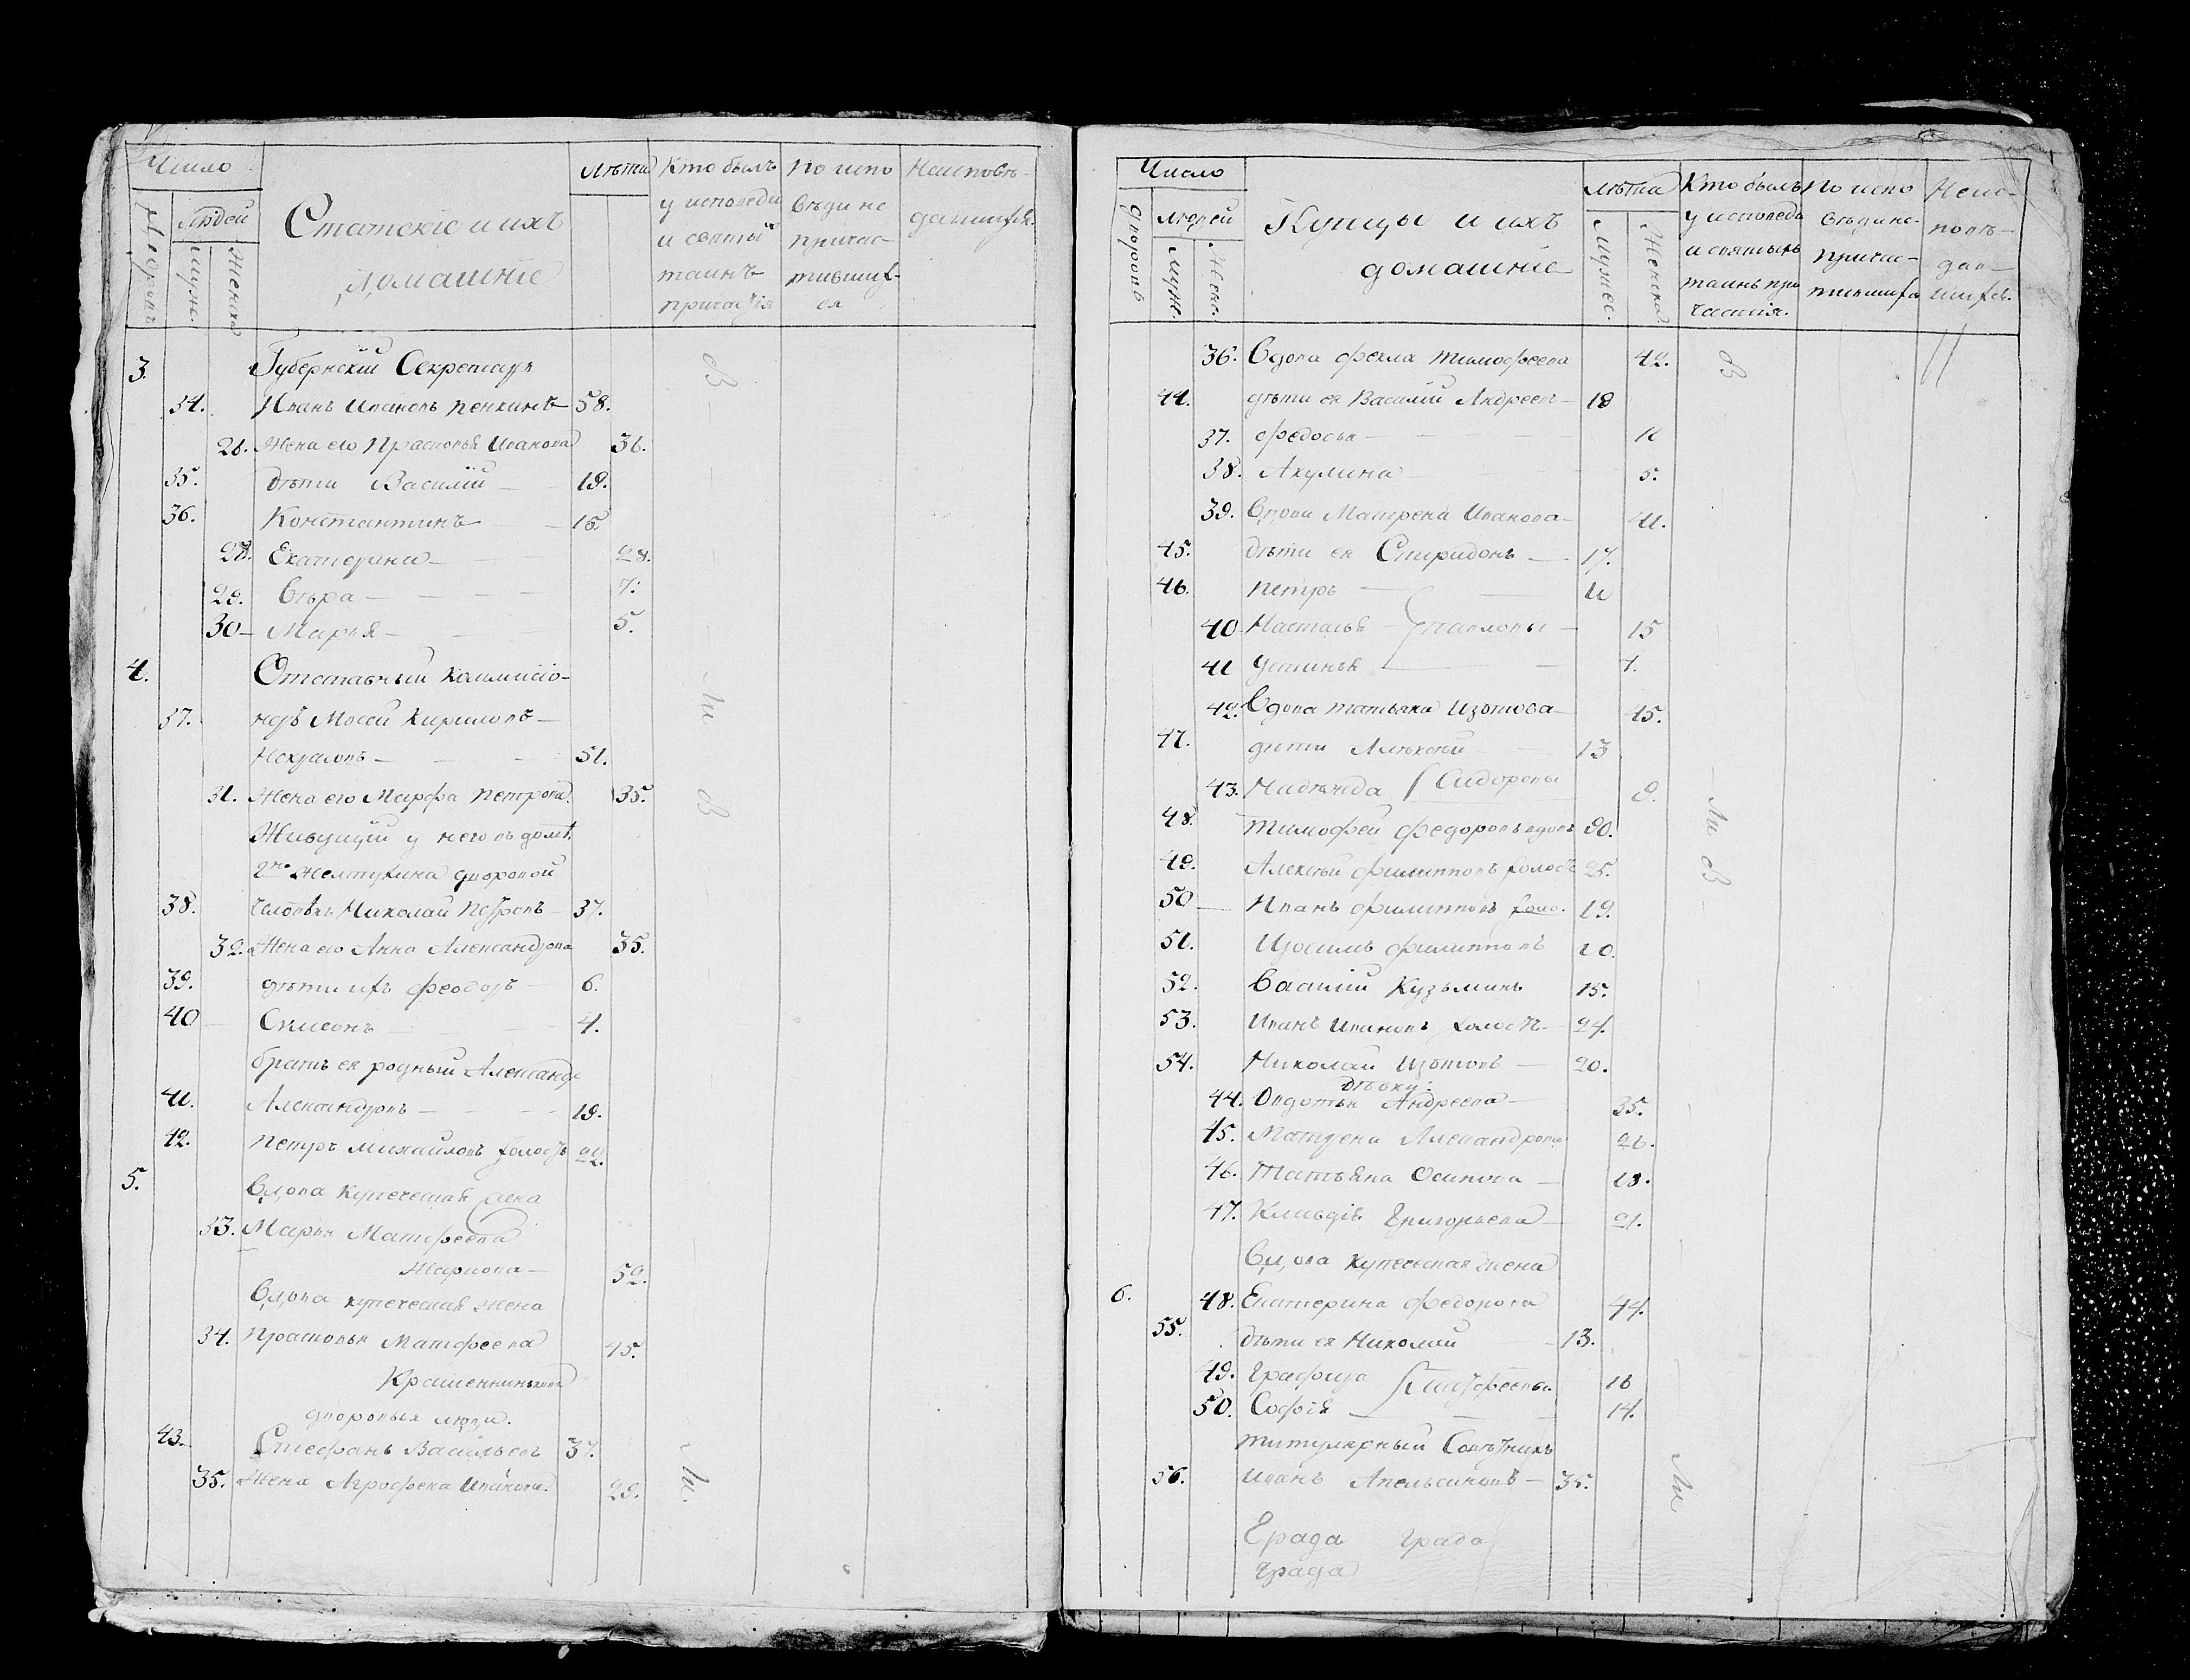 Число
Людей
Дворовъ
Мужс.
Женска
Статскіе и ихъ
Домашніе
Лѣта
Кто былъ
у исповеди
и святыхъ
таинъ
причастія
По испо
вѣди не
причас-
тивших-
ся
Неисповѣ-
давшихся.
3.
Губернскій Секретарь
34. Иванъ Ивановъ Пенкинъ 58.
26. Жена его Прасковья Иванова 36.
35. дѣти Василій — 19.
36. Константинъ — 15.
28. Екатерина — 28.
29. Вѣра — 7.
30 — Марья — 5.
4. Отставный Коммисіо-
37. неръ Мосей Кириловъ —
— 51.
31. Жена его Марфа Петрова. 35.
Живущій у него въ домѣ
Желтухина дворовой
38. человѣкъ Николай Петровъ — 37.
32. Жена его Анна Александрова 35.
39. дѣти ихъ Феодоръ — 6.
40 Симеонъ — 4.
братъ ея родный Александръ
41. Александровъ — 19.
42. Петръ Михайловъ холостъ 22.
5.
Вдова купеческая жена
33. Марья Матфеева
Жаркова — 52.
Вдова купеческая жена
34. Прасковья Матфеева 45.
Крашенинникова
дворовыя люди.
43. Стефанъ Васильевъ 37.
35. Жена Агрофена Иванова. 29.
Ли
ов
Число
дворовъ
людей
Мужс.
Женс.
Купцы и ихъ
домашніе
лѣта
Мужес.
Женска
Кто былъ
у исповеди
и святыхъ
таинъ при
частія.
По испо
вѣди не-
причас-
тившихся
Неис-
повѣ-
дав-
шихся.
36. Вдова Фекла Тимофеева 42.
44. дѣти ея Василій Андреевъ — 18
37. Федосья — 11
38. Акулина 5.
39. Вдова Матрена Иванова — 41.
45. дѣти ея Спиридонъ — 17.
46. Петръ — 10
40. Настасья — Павловы — 15
41 Устинья — 7.
42. Вдова Татьяна Изотова — 45.
47. дѣти Алексей 13
43. Надежда Сидоровы 9.
48. Тимофей Федоровъ вдовъ 90.
49. Алексей Филипповъ холостъ 25.
50 — Иванъ Филипповъ холо. 19.
51. Изосимъ Филипповъ 20.
52. Василій Кузьминъ 15.
53. Иванъ Ивановъ холостъ. 24.
54. Николай Изотовъ — 20.
дѣвки:
44. Овдотья Андреева — 35.
45. Матрена Александрова 26.
46. Татьяна Осипова — 18.
47. Клавдія Григорьева — 21.
Вдова купеческая жена
6. 48. Екатерина Федорова 44.
55. дѣти ея Николай — 13.
49. 16
50. Софія — 14.
Титулярный Совѣтникъ
56. Иванъ Апельсиновъ — 35.
Града Града
Града
Ли
ов